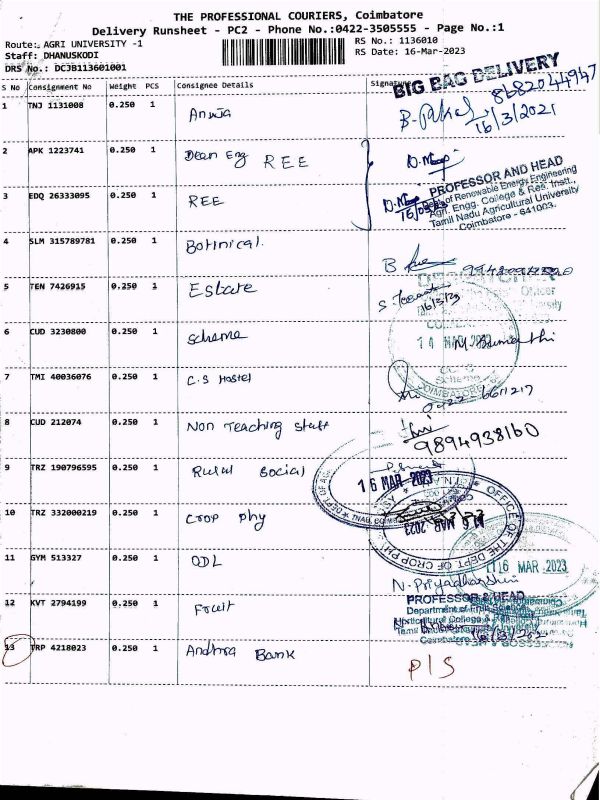 THE PROFESSIONAL COURIERS, Coimbatore
Delivery Runsheet - PC2 - Phone No.:0422-3505555 - Page No.:1
Route: AGRI UNIVERSITY -1 RS No.: 1136010
Staff: DHANUSKODI RS Date: 16-Mar-2023
DRS No.: DCJB113601001
BIG BAG DELIVERY
S No Consignment No Weight PCS Consignee Details Signature
8682044947
1 TNJ 1131008 0.250 1
16/3/2021
2 APK 1223741 0.250 1 Dean Eng REE
PROFESSOR AND HEAD
of Renewable Energy Engineering
3 EDQ 26333095 0.250 1 REE
Agri. Engg. College & Res. Instt.,
Tamil Nadu Agricultural University
Coimbatore - 641003.
4 SLM 315789781 0.250 1 Botinical.
5 TEN 7426915 0.250 1 Estate
16/3/23
6 CUD 3230800 0.250 1 scheme
7 TMI 40036076 0.250 1 C.S Hostel
0422-6611217
8 CUD 212074 0.250 1 Non Teaching staff
9894938160
9 TRZ 190796595 0.250 1 Rural Social
16 MAR 2023
10 TRZ 332000219 0.250 1 Crop Phy
OFFICE OF THE DEPT. OF CROP PHY
MAR 2023
11 GYM 513327 0.250 1 ODL
16 MAR 2023
N. Priyadharshini
12 KVT 2794199 0.250 1 Fruit
PROFESSOR & HEAD
Department of Fruit Science
Horticultural College &
13 TRP 4218023 0.250 1 Andhra Bank
P/S